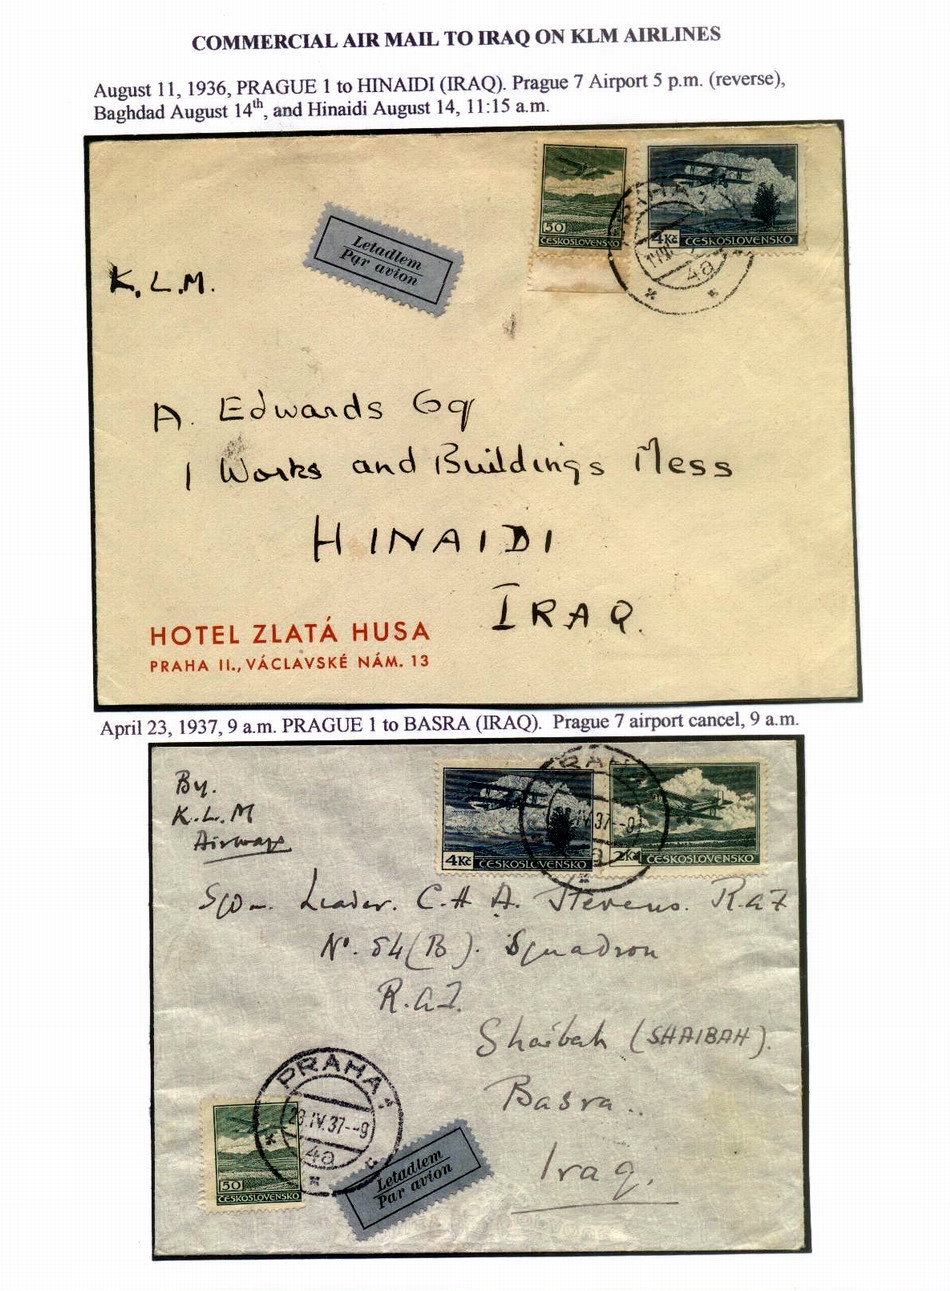 COMMERCIAL AIR MAIL TO IRAQ ON KLM AIRLINES
August 11, 1936, PRAGUE 1 to HINAIDI (IRAQ). Prague 7 Airport 5 p.m. (reverse),
Baghdad August 14th, and Hinaidi August 14, 11:15 a.m.
50
ČESKOSLOVENSKO
4Kč ČESKOSLOVENSKO
PRAHA 1
4a
Letadlem
Par avion
K.L.M.
A. Edwards Esq
1 Works and Buildings Mess
HINAIDI
IRAQ.
HOTEL ZLATÁ HUSA
PRAHA II., VÁCLAVSKÉ NÁM. 13
April 23, 1937, 9 a.m. PRAGUE 1 to BASRA (IRAQ). Prague 7 airport cancel, 9 a.m.
By.
K.L.M
Airways
4Kč ČESKOSLOVENSKO
2Kč ČESKOSLOVENSKO
PRAHA
IV.37--9
Sqdn. Leader. C.H.A. Stevens. R.a.F
No. 84(B). Squadron
R.a.F.
Shaibah (SHAIBAH).
Basra..
Iraq.
PRAHA 1
23.IV.37--9
4a
50
ČESKOSLOVENSKO
Letadlem
Par avion